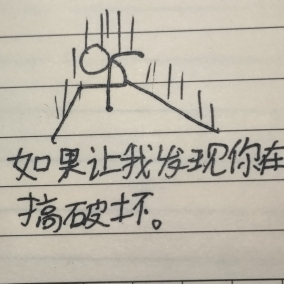 如果让我发现你在
搞破坏。